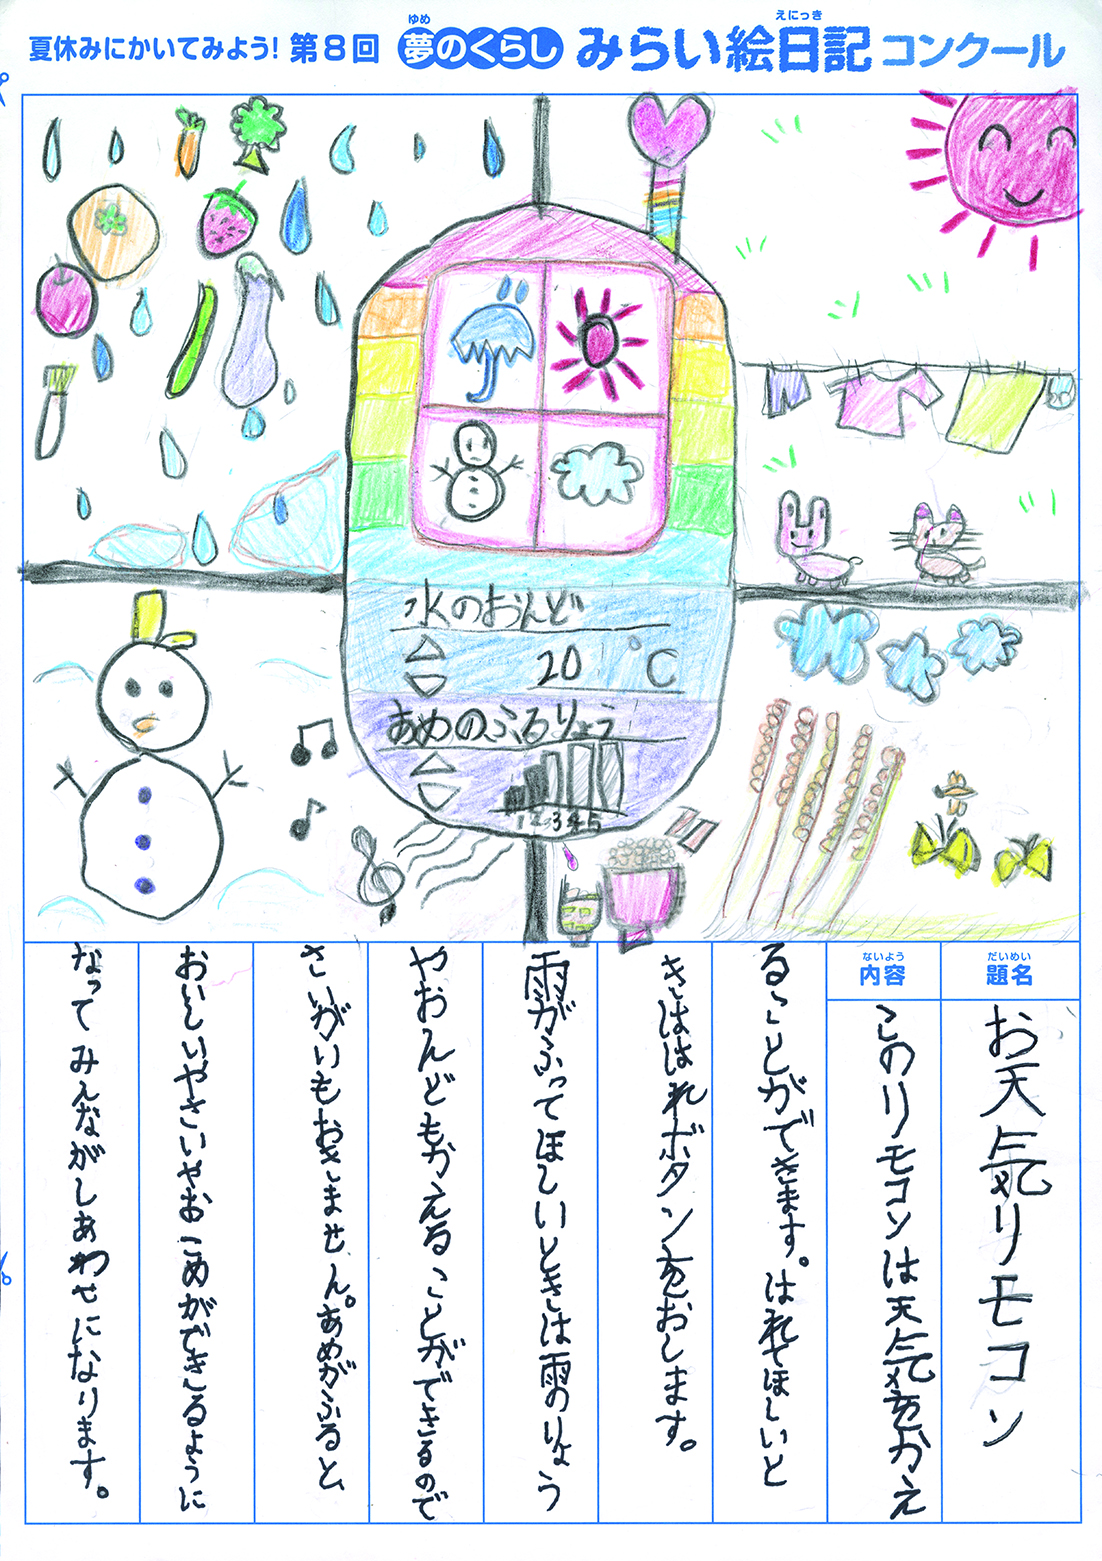 夏休みにかいてみよう! 第8回 夢のくらし みらい絵日記コンクール
ゆめ
えにっき
水のおんど
20 °C
あめのふるりょう
12345
だいめい
題名
お天気リモコン
ないよう
内容
このリモコンは天気をかえ
ることができます。はれてほしいと
きははれボタンをおします。
雨がふってほしいときは雨のりょう
やおんどもかえることができるので
さいがいもおきません。あめがふると
おいしいやさいやおこめができるように
なってみんながしあわせになります。